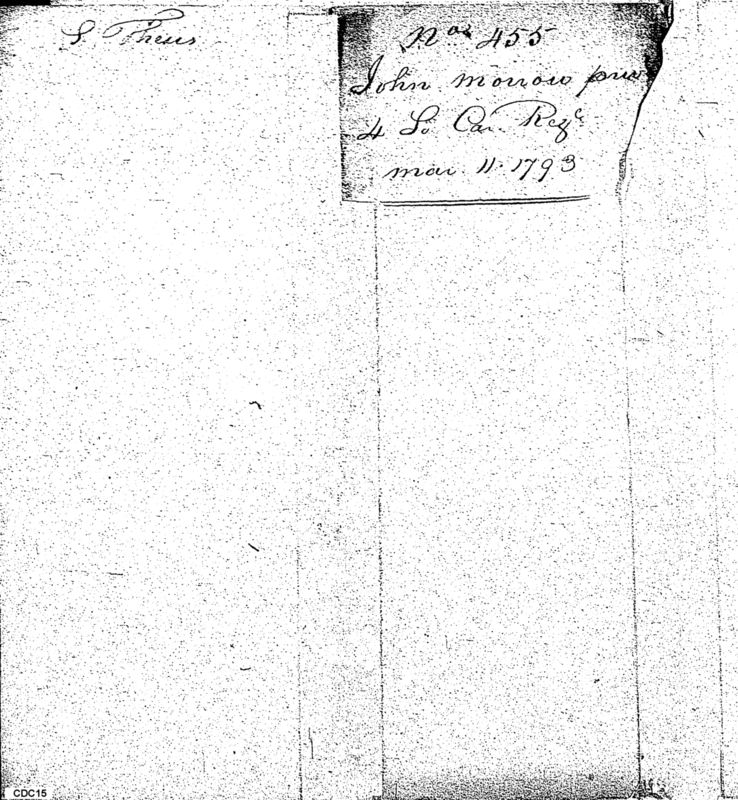 S. Theus
Nos 455
John Morrow priv
4 So Car. Regt
mar. 11. 1793
CDC15